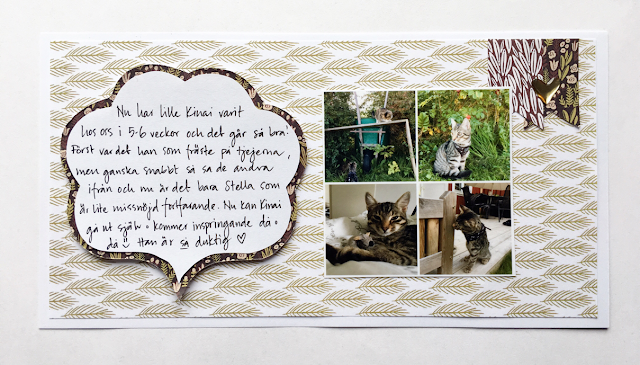 Nu har lille Kinai varit
hos oss i 5-6 veckor och det går så bra!
Först var det han som fräste på tjejerna,
men ganska snabbt så sa de andra
ifrån och nu är det bara Stella som
är lite missnöjd fortfarande. Nu kan Kinai
gå ut själv o kommer inspringande då o
då Han är så duktig ♡